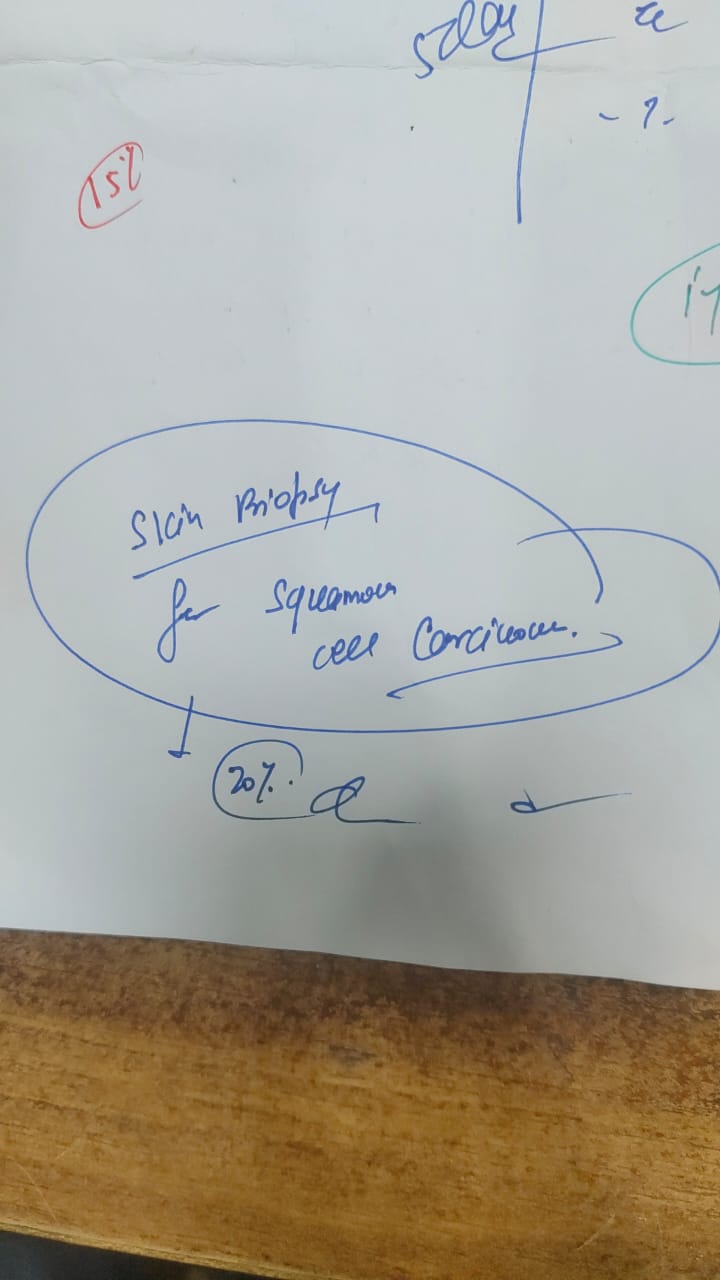 5 day
- ? -
15%
Skin Biopsy
for Squamous
cell Carcinoma.
20%.